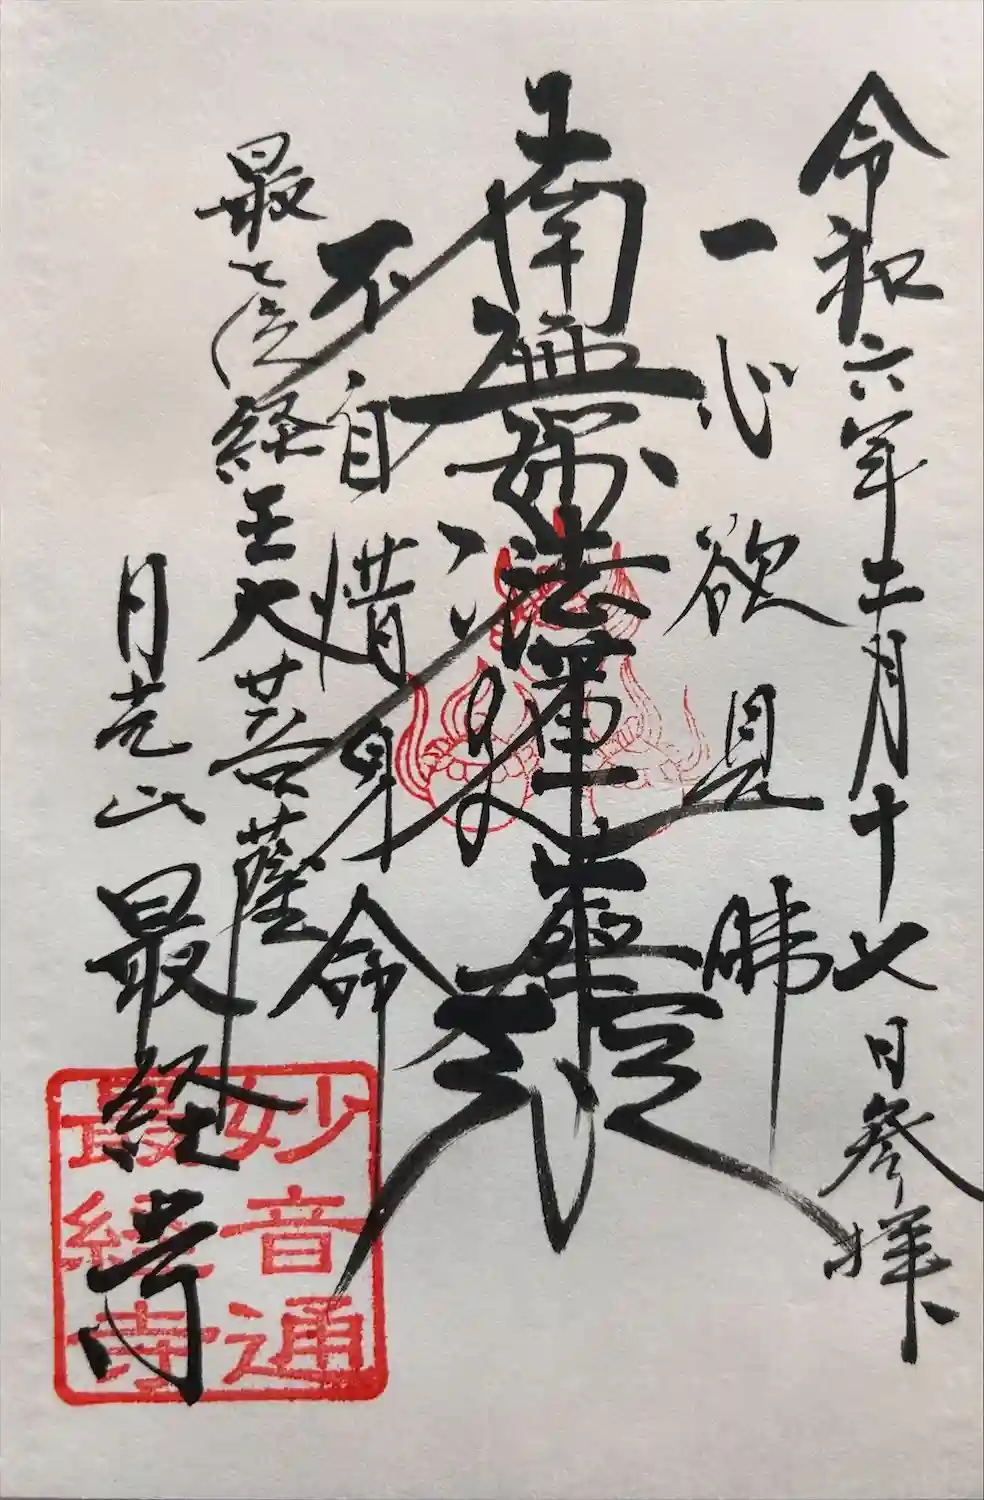 令和六年十二月十七日参拝
一心欲見佛
南無妙法蓮華経
不自惜身命
最上位経王大菩薩
月光山 最経寺
妙音通
最経寺